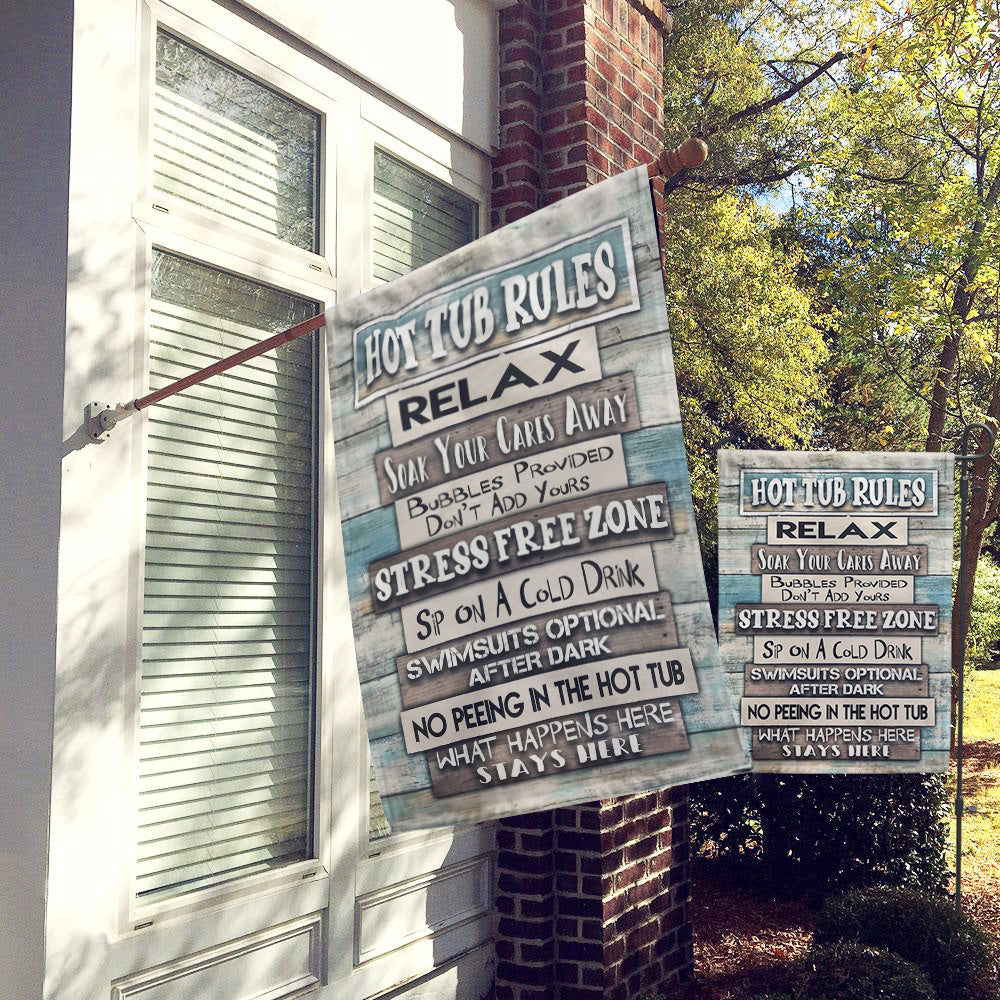 HOT TUB RULES
RELAX
SOAK YOUR CARES AWAY
BUBBLES PROVIDED
DON'T ADD YOURS
STRESS FREE ZONE
SIP ON A COLD DRINK
SWIMSUITS OPTIONAL
AFTER DARK
NO PEEING IN THE HOT TUB
WHAT HAPPENS HERE
STAYS HERE
HOT TUB RULES
RELAX
SOAK YOUR CARES AWAY
BUBBLES PROVIDED
DON'T ADD YOURS
STRESS FREE ZONE
SIP ON A COLD DRINK
SWIMSUITS OPTIONAL
AFTER DARK
NO PEEING IN THE HOT TUB
WHAT HAPPENS HERE
STAYS HERE